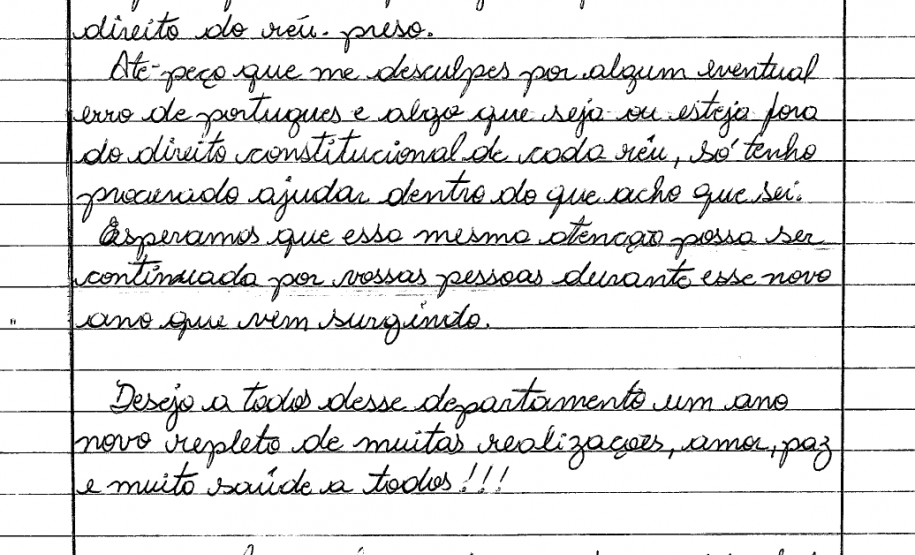 direito do réu. preso.
Ate-peço que me desculpes por algum eventual
erro de portugues e algo que seja ou esteja fora
do direito constitucional de cada réu, só tenho
procurado ajudar dentro do que acho que sei.
Esperamos que essa mesma atencao possa ser
continuada por vossas pessoas durante esse novo
ano que vem surgindo.
Desejo a todos desse departamento um ano
novo repleto de muitas realizaçoes, amor, paz
e muito saúde a todos!!!